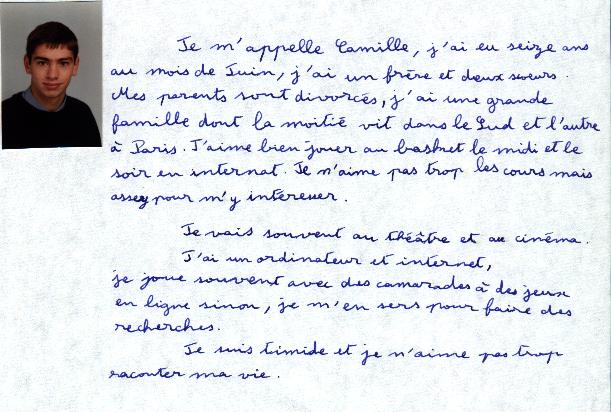 Je m'appelle Camille, j'ai eu seize ans
au mois de Juin, j'ai un frère et deux soeurs.
Mes parents sont divorcés, j'ai une grande
famille dont la moitié vit dans le Sud et l'autre
à Paris. J'aime bien jouer au basket le midi et le
soir en internat. Je n'aime pas trop les cours mais
assez pour m'y intéresser.
Je vais souvent au théâtre et au cinéma.
J'ai un ordinateur et internet,
je joue souvent avec des camarades à des jeux
en ligne sinon, je m'en sers pour faire des
recherches.
Je suis timide et je n'aime pas trop
raconter ma vie.